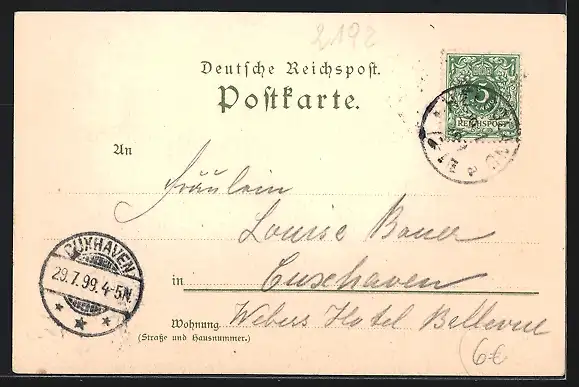 2192
Deutsche Reichspost.
Postkarte.
5
REICHSPOST
An
Fräulein
Louise Bauer
CUXHAVEN
29.7.99.4-5N.
in Cuxhaven
Wohnung Webers Hotel Bellevue
(Straße und Hausnummer.)
6€